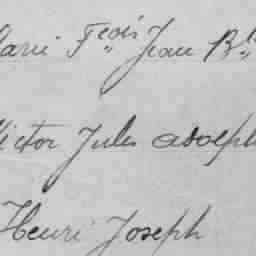 Marie Fçois Jean Bte
Victor Jules Adolph
Henri Joseph